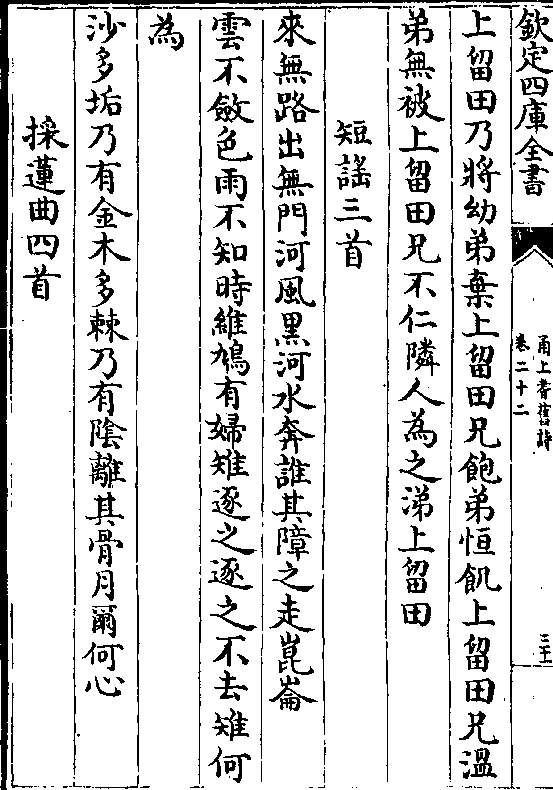 欽定四庫全書
甬上耆舊詩
卷二十二
三十一
上留田乃將幼弟棄上留田兄飽弟恒飢上留田兄溫
弟無被上留田兄不仁隣人為之涕上留田
短謡三首
來無路出無門河風黑河水奔誰其障之走崑崙
雲不斂色雨不知時維鳩有婦雉逐之逐之不去雉何
為
沙多垢乃有金木多棘乃有陰離其骨月爾何心
採蓮曲四首